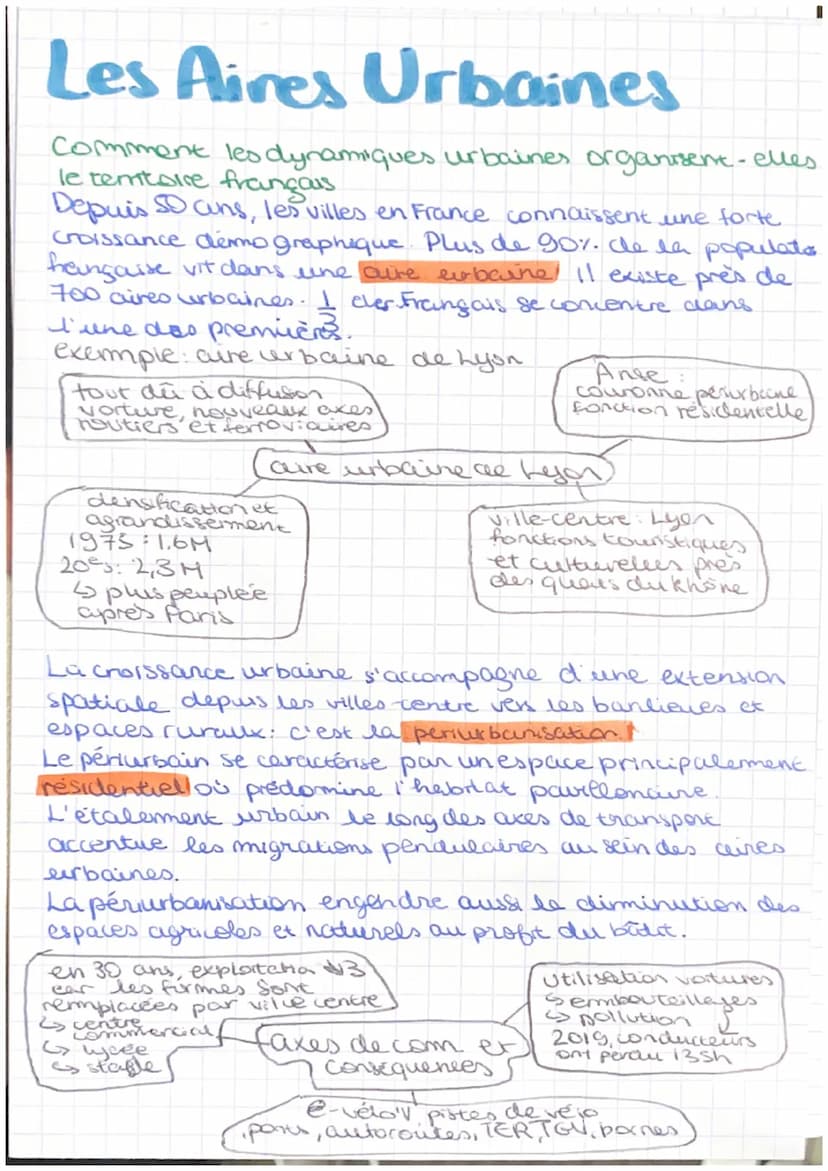 Les Aires Urbaines
Comment les dynamiques urbaines organisent-elles
le territoire français
Depuis 50 ans, les villes en France connaissent une forte
croissance démographique. Plus de 90% de la populato
française vit dans une aire urbaine! Il existe près de
700 aires urbaines. 1/3 des Français se concentre dans
l'une des premières.
exemple: aire urbaine de Lyon
tout dû à diffusion
voiture, nouveaux axes
routiers et ferroviaires
Anse :
couronne périurbaine
fonction résidentelle
aire urbaine de Lyon
densification et
agrandissement
1975 : 1,6M
20es: 2,3M
↳ plus peuplée
après Paris
ville-centre : Lyon
fonctions touristiques
et culturelles près
des quais du Rhône
La croissance urbaine s'accompagne d'une extension
spatiale depuis les villes-centre vers les banlieues et
espaces ruraux: c'est la périurbanisation.
Le périurbain se caractérise par un espace principalement
résidentiel où prédomine l'habitat pavillonaire.
L'étalement urbain le long des axes de transport
accentue les migrations pendulaires au sein des aires
urbaines.
La périurbanisation engendre aussi la diminution des
espaces agricoles et naturels au profit du bâtit.
en 30 ans, exploitation ↓3
car les firmes sont
remplacées par ville centre
↳ centre
commercial
↳ lycée
↳ stade
utilisation voitures
↳ embouteillages
↳ pollution
2019, conducteurs
ont perdu 135h
axes de com et
conséquences
e-vélo'V pistes de vélo
, autoroutes, TER, TGV, bornes